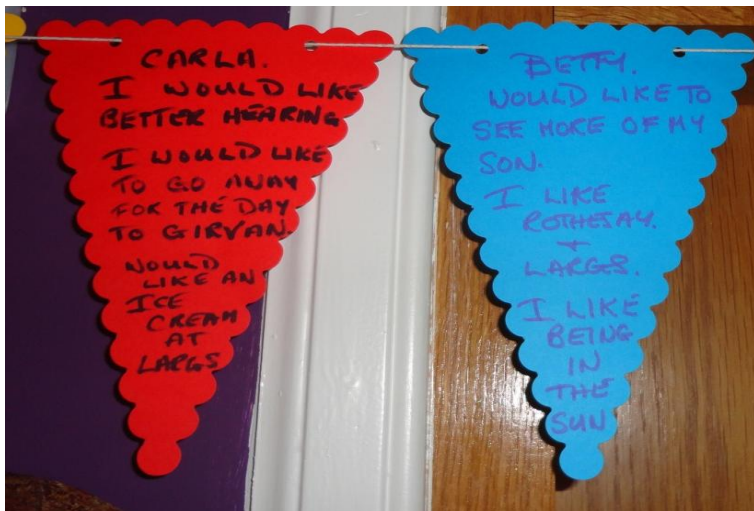 CARLA.
I WOULD LIKE
BETTER HEARING
I WOULD LIKE
TO GO AWAY
FOR THE DAY
TO GIRVAN.
WOULD
LIKE AN
ICE
CREAM
AT
LARGS
BETTY.
WOULD LIKE TO
SEE MORE OF MY
SON.
I LIKE
ROTHESAY.
+
LARGS.
I LIKE
BEING
IN
THE
SUN